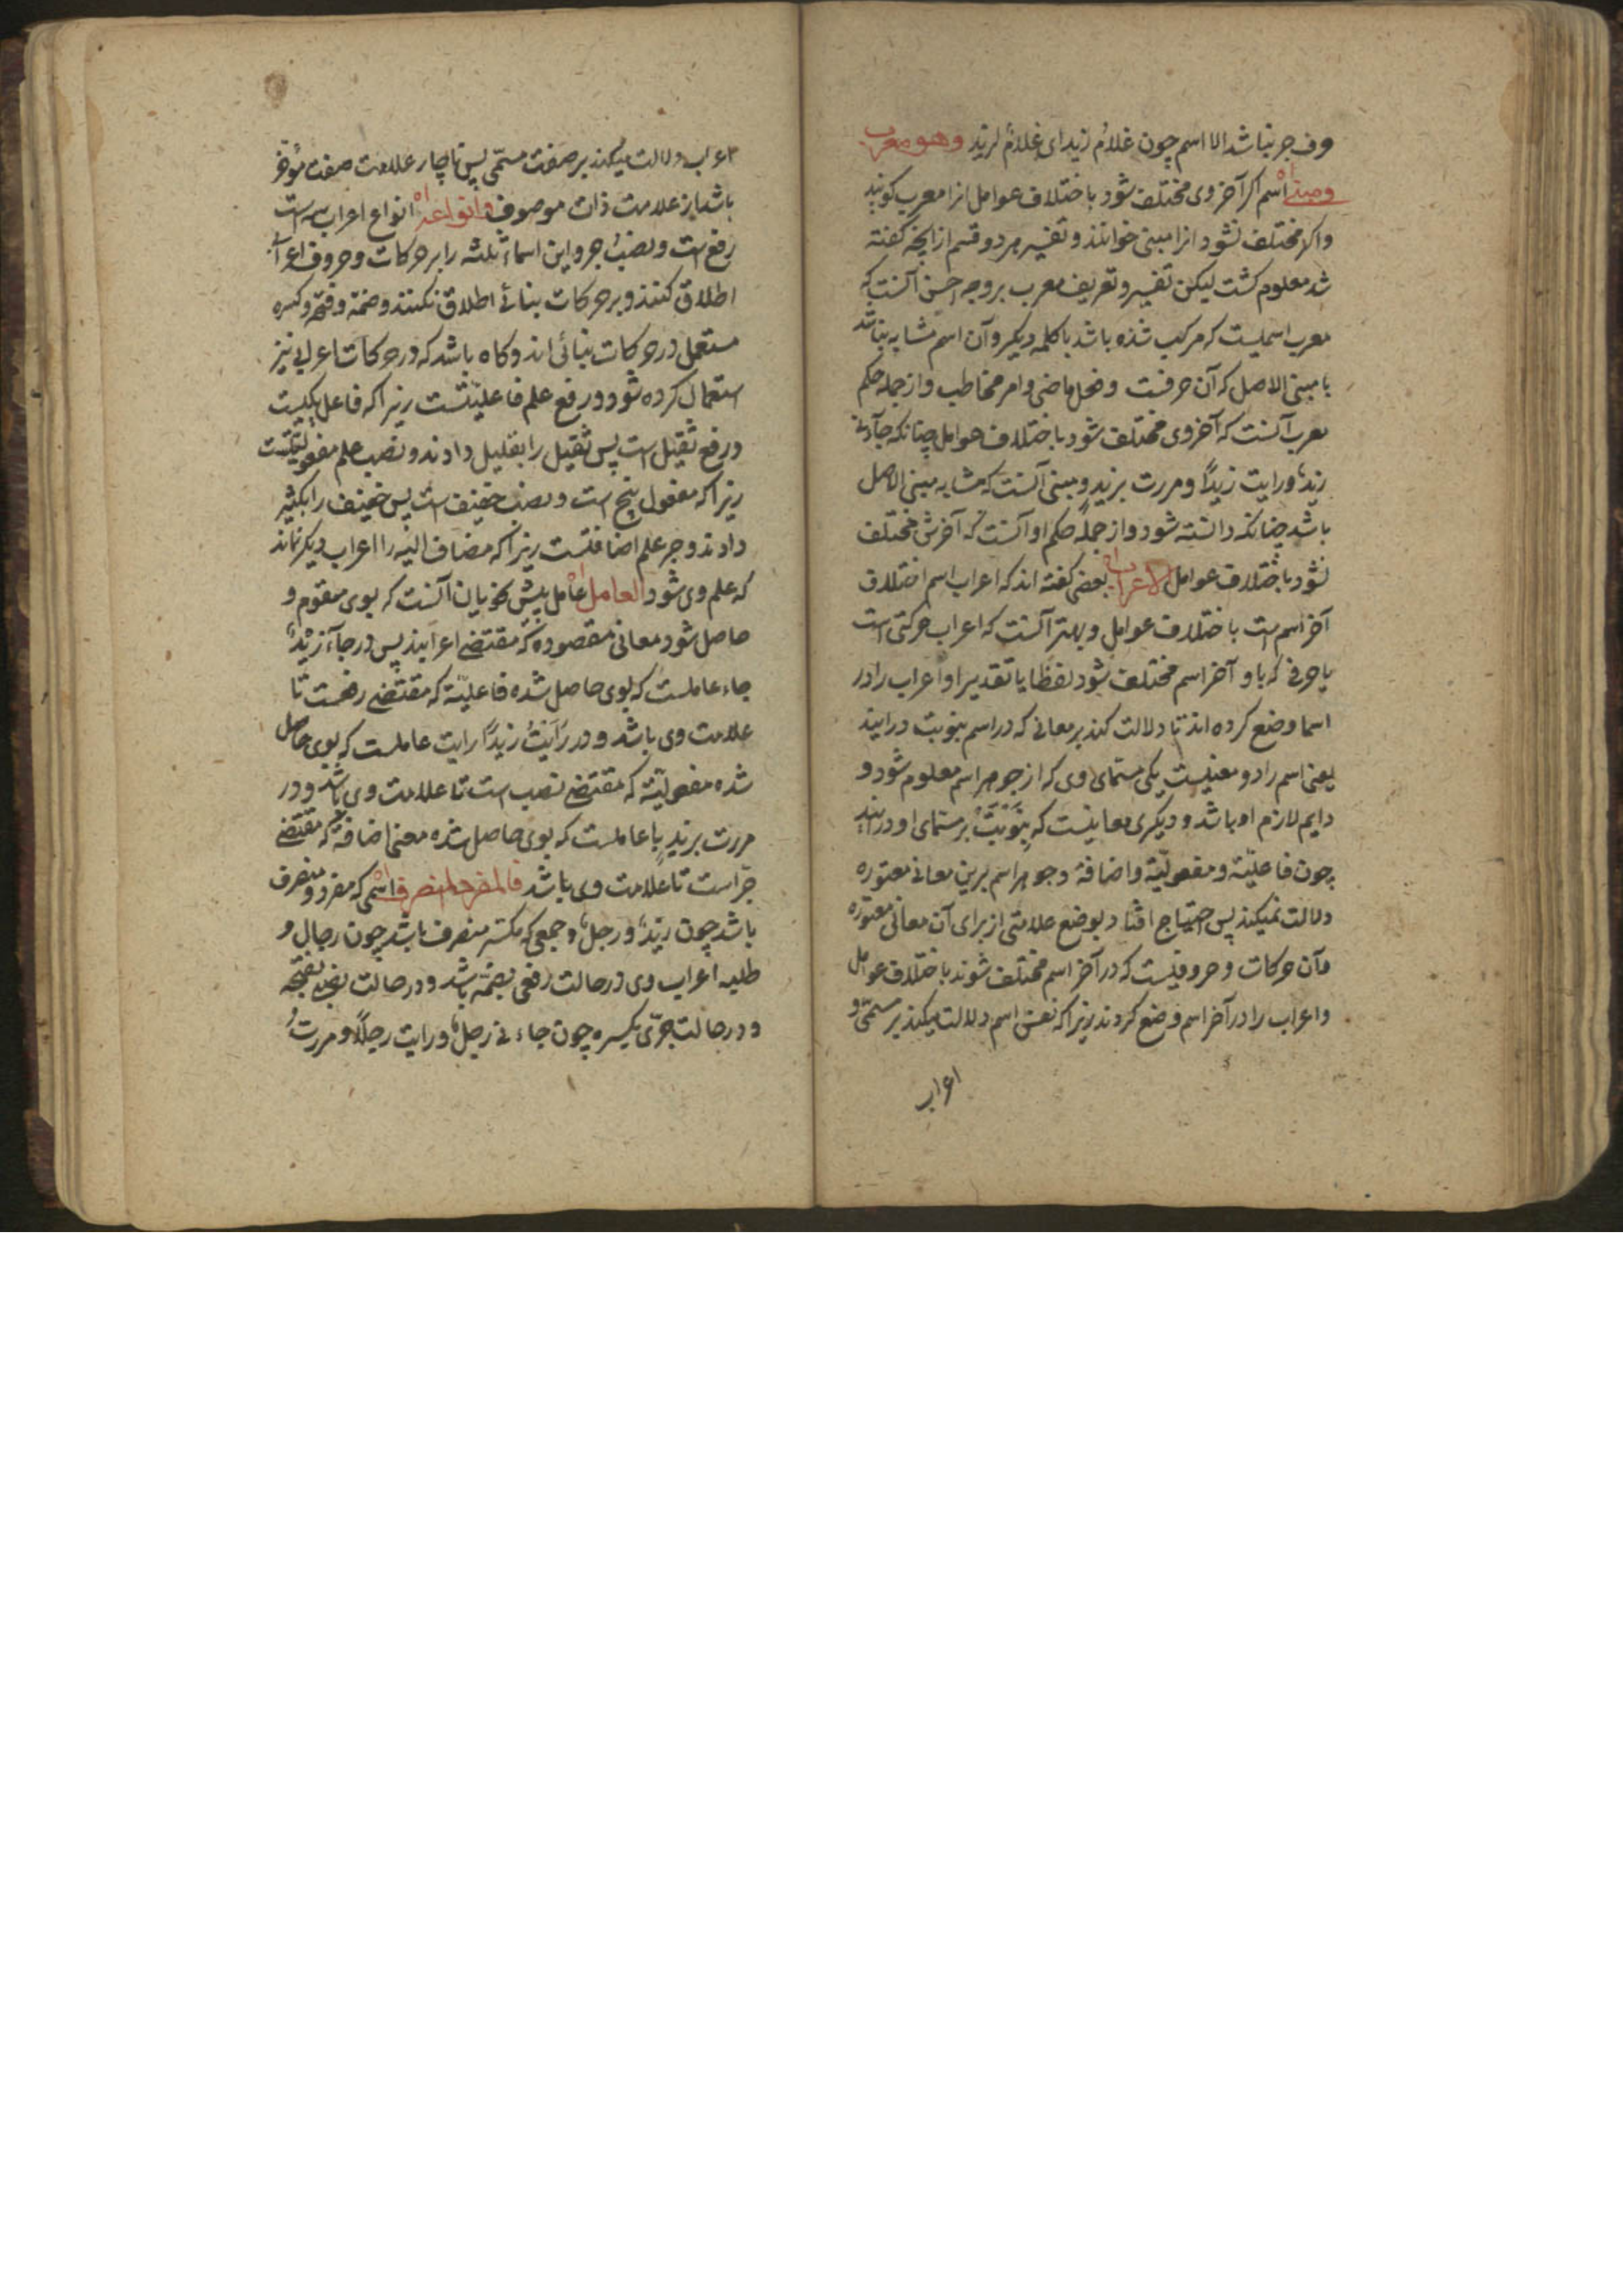 وف جر نباشد الا اسم چون غلام زید ای غلام لزید وهو معرب
ومبنی اسم اکر آخر وی مختلف شود باختلاف عوامل انرا معرب کویند
واکر مختلف نشود انرا مبنی خوانند و تفسیر هر دو قسم از انچه کفته
شد معلوم کشت لیکن تفسیر و تعریف معرب بر وجه احسن آنست که
معرب اسمیست که مرکب شده باشد با کلمه دیکر و آن اسم مشابه نباشد
با مبنی الاصل که آن حرفست و فعل ماضی و امر مخاطب و از جمله حکم
معرب آنست که آخر وی مختلف شود باختلاف عوامل چنانکه جآءنی
زیدٌ و رایت زیداً و مررت بزید و مبنی آنست که مشابه مبنی الاصل
باشد چنانکه دانسته شود و از جمله حکم او آنست که آخرش مختلف
نشود باختلاف عوامل الاعراب بعضی کفته اند که اعراب اسم اختلاف
آخر اسم است باختلاف عوامل و بهتر آنست که اعراب حرکتی است
یا حرفی که باو آخر اسم مختلف شود لفظا یا تقدیرا و اعراب را در
اسما وضع کرده اند تا دلالت کند بر معانی که در اسم بنوبت درایند
یعنی اسم را دو معنیست یکی مسمای وی که از جوهر اسم معلوم شود و
دایم لازم او باشد و دیکری معانیست که بنوبت بر مسمای او درایند
چون فاعلیّة و مفعولیّة و اضافة و جوهر اسم برین معانی معتوره
دلالت نمیکند پس احتیاج افتاد بوضع علامتی از برای آن معانی معتوره
وآن حرکات و حروفیست که در آخر اسم مختلف شوند باختلاف عوامل
و اعراب را در آخر اسم وضع کردند زیرا که نفس اسم دلالت میکند بر مسمّی و
اعراب
اعراب دلالت میکند بر صفت مسمّی پس ناچار علامت صفت مؤخر
باشد از علامت ذات موصوف وانواعه انواع اعراب سه است
رفع است و نصب و جر و این اسماء ثلثه را بر حرکات و حروف اعراب
اطلاق کنند و بر حرکات بنائی اطلاق نکنند و ضمّه و فتحه و کسره
مستعمل در حرکات بنائی اند و کاه باشد که در حرکات اعرابی نیز
استعمال کرده شود و رفع علم فاعلیّتست زیرا که فاعل یکیست
و رفع ثقیل است پس ثقیل را بقلیل دادند و نصب علم مفعولیّتست
زیرا که مفعول پنج است و نصب خفیف است پس خفیف را بکثیر
دادند و جر علم اضافتست زیرا که مضاف الیه را اعراب دیکر نماند
که علم وی شود العامل عامل پیش نحویان آنست که بوی متقوم و
حاصل شود معانی مقصوده که مقتضی اعرابند پس در جآء زیدٌ
جاء عاملست که بوی حاصل شده فاعلیّة که مقتضی رفعست تا
علامت وی باشد و در رأیتُ زیداً رایت عاملست که بوی حاصل
شده مفعولیّة که مقتضی نصب است تا علامت وی باشد و در
مررت بزید با عاملست که بوی حاصل شده معنی اضافة که مقتضی
جرّ است تا علامت وی باشد فالمفرد المنصرف اسمی که مفرد و منصرف
باشد چون زیدٌ و رجلٌ و جمعی که مکسّر منصرف باشد چون رجال و
طلبه اعراب وی در حالت رفعی بضمّه باشد و در حالت نصبی بفتحه
و در حالت جرّی بکسره چون جاءنی رجلٌ و رایت رجلاً و مررتُ